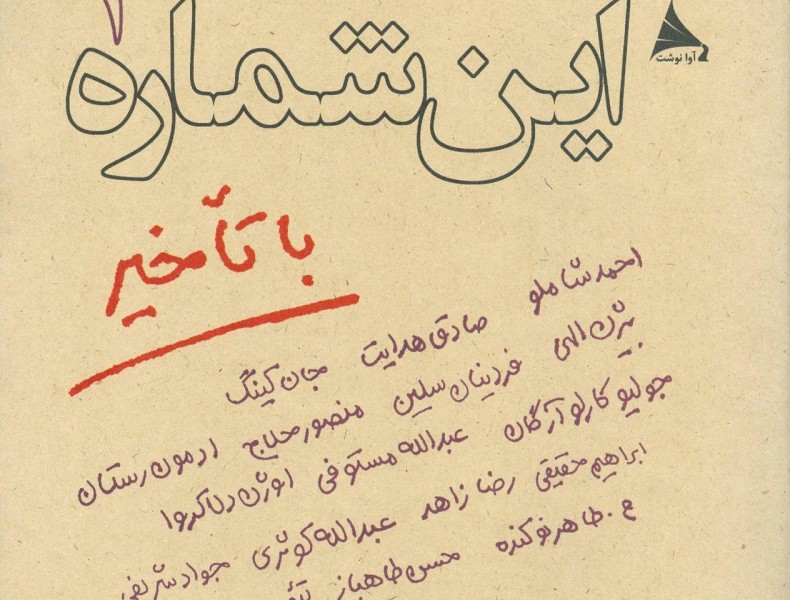 آوا نوشت
این شماره
با تأخیر
احمد شاملو صادق هدایت جان کینگ
بیژن الهی فردینان سلین منصور حلاج ادمون رستان
جولیو کارلو آرگان عبدالله مستوفی اوژن دلاکروا
ابراهیم حقیقی رضا زاهد عبدالله کوثری جواد شریفی
ع. طاهر نوکنده حسن طاهباز